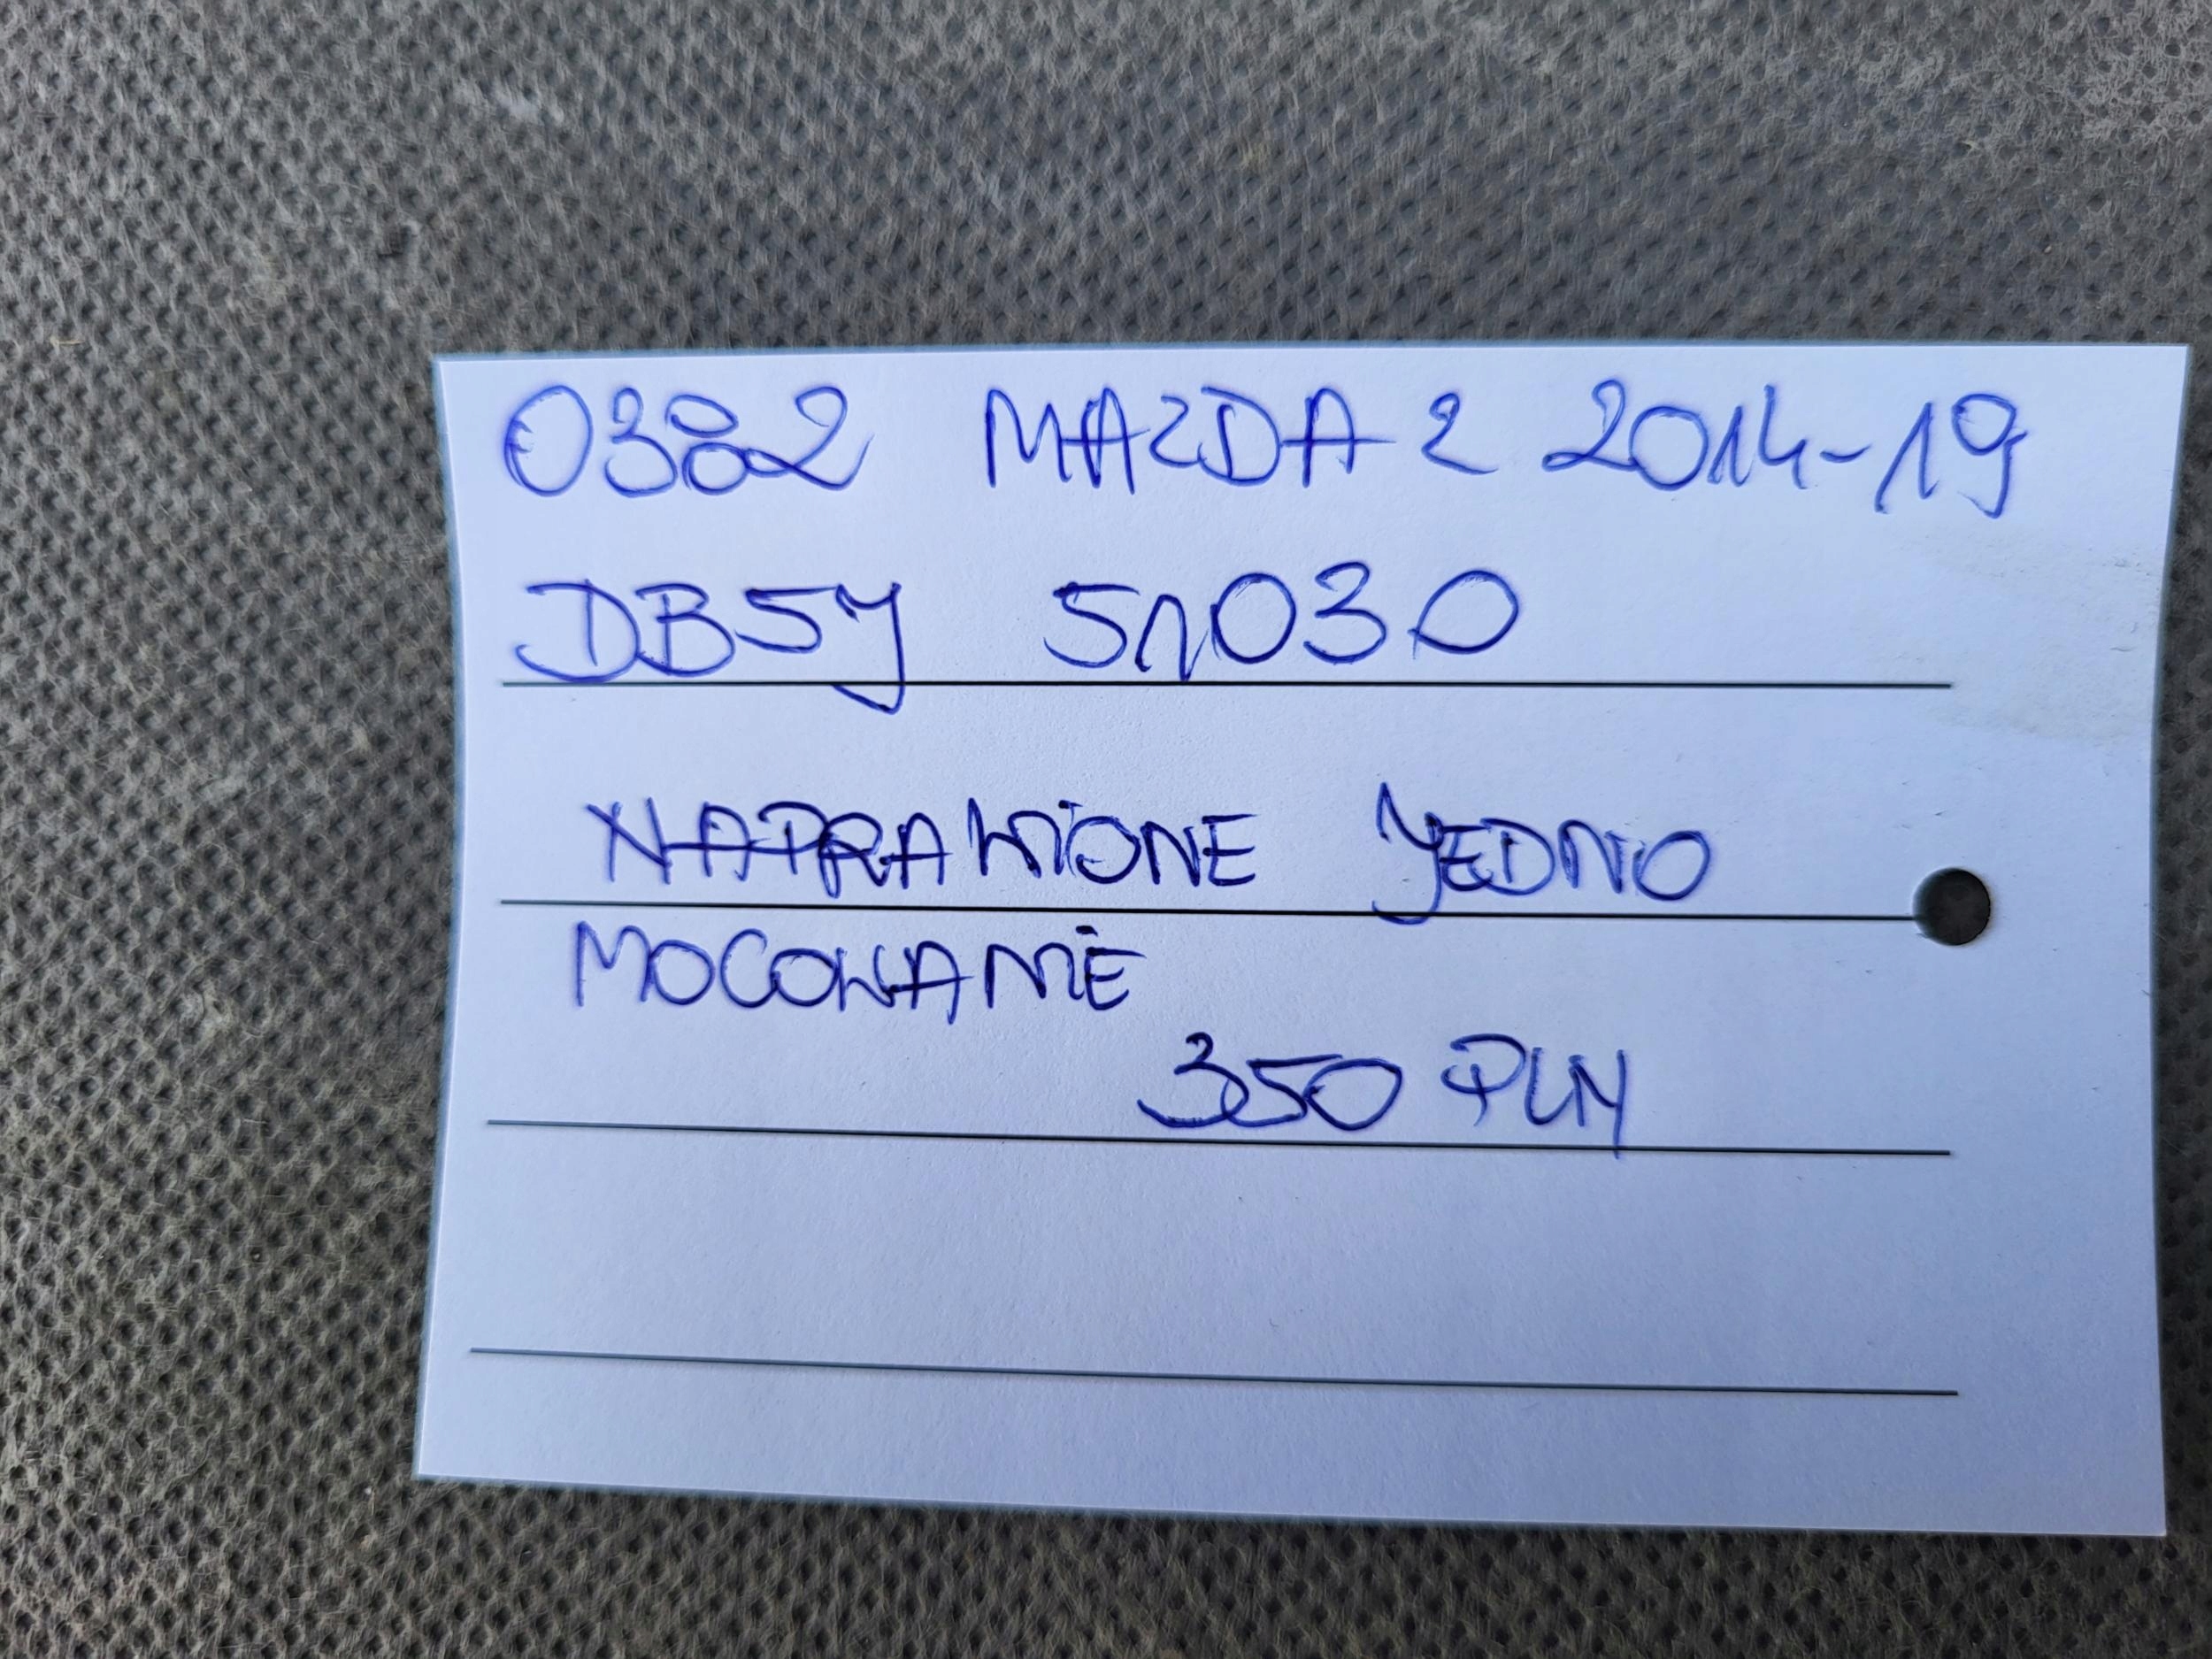 0382 MAZDA 2 2014-19
DB5J 51030
NAPRAWIONE JEDNO
MOCOWANIE
350 PLN